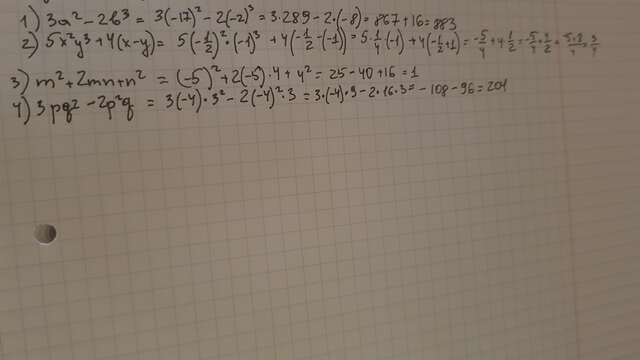 1) 3a² - 2b³ = 3(-17)² - 2(-2)³ = 3·289 - 2·(-8) = 867 + 16 = 883
2) 5x²y³ + 4(x-y) = 5(-1/2)²·(-1)³ + 4(-1/2-(-1)) = 5·1/4·(-1) + 4(-1/2+1) = -5/4 + 4·1/2 = -5/4 + 4/2 = -5+8/4 = 3/4
3) m² + 2mn + n² = (-5)² + 2(-5)·4 + 4² = 25 - 40 + 16 = 1
4) 3pq² - 2p²q = 3(-4)·3² - 2(-4)²·3 = 3·(-4)·9 - 2·16·3 = -108 - 96 = 204